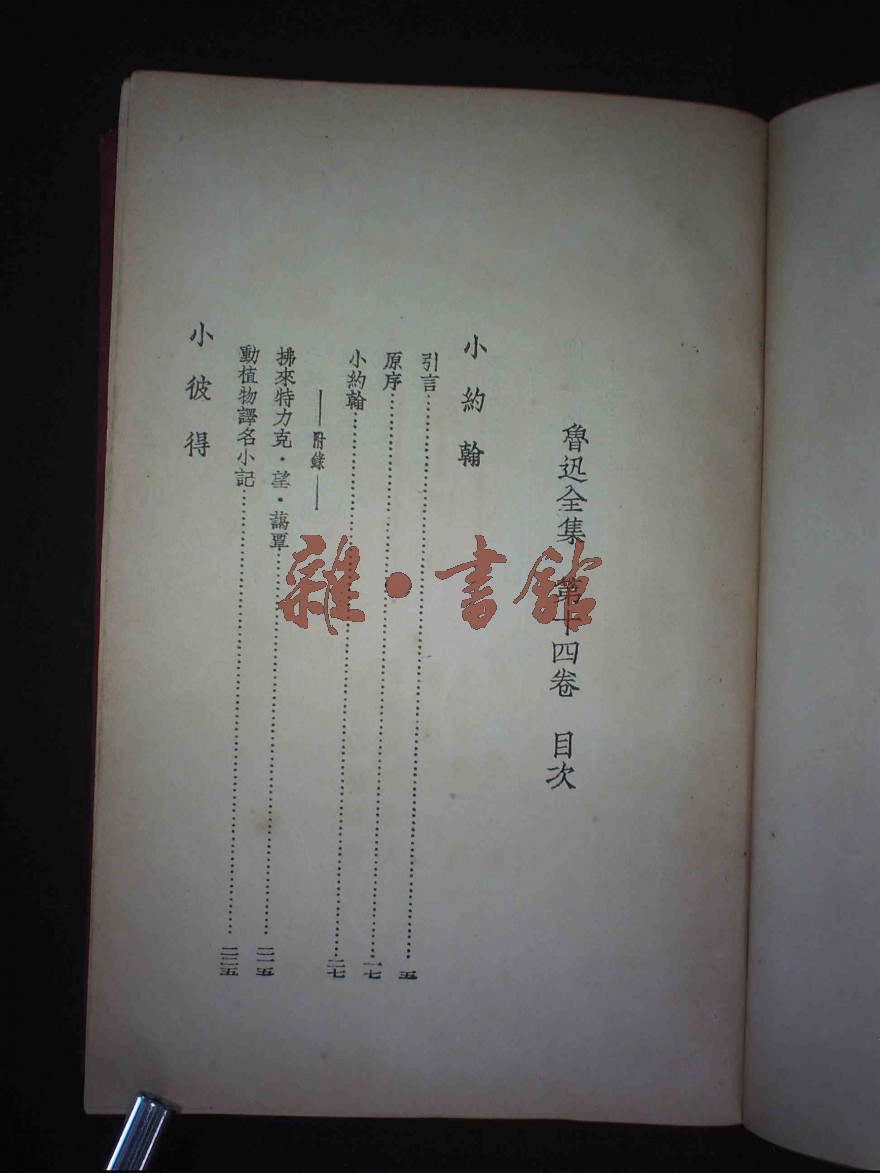 魯迅全集 第十四卷 目次
小約翰
引言……五
原序……一七
小約翰……二七
——附錄——
拂來特力克・望・藹覃……二一五
動植物譯名小記……二三五
小彼得
雜・書館